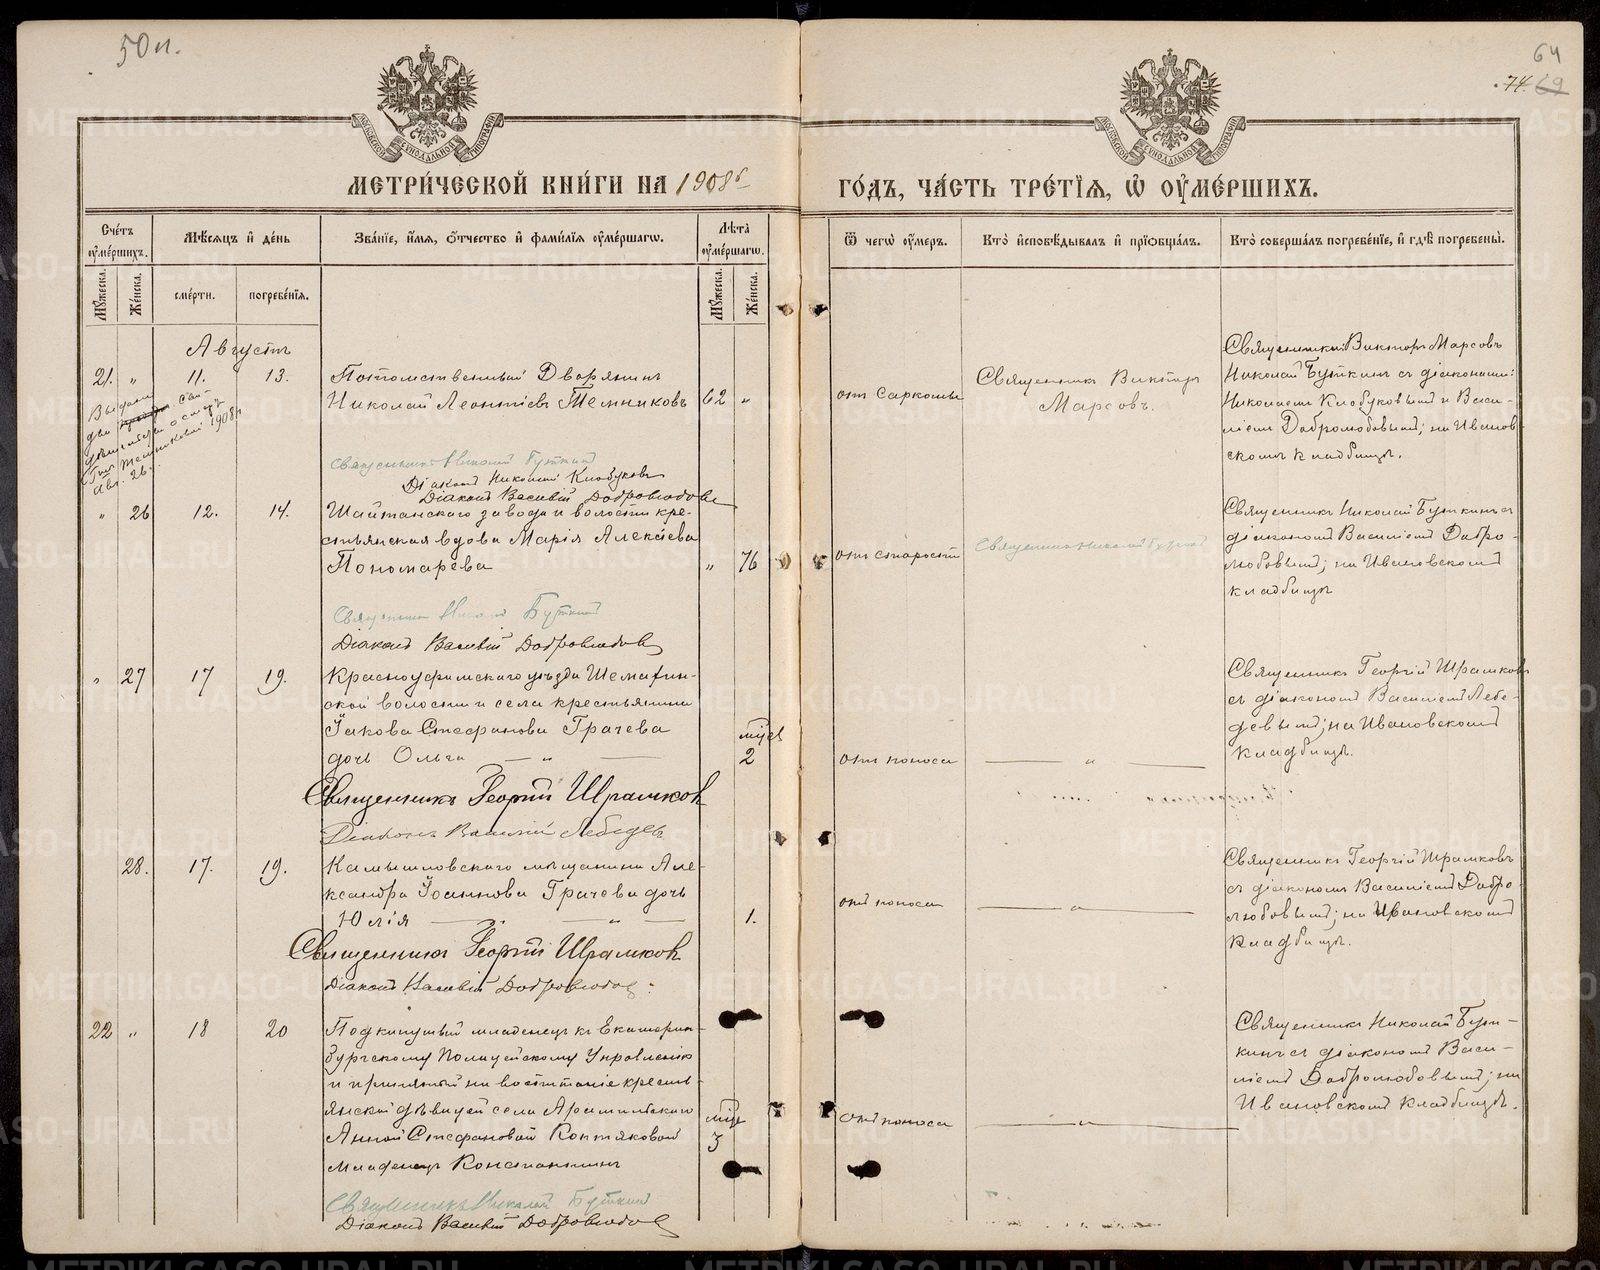 50 л.
64
74. 69
МЕТРИ́ЧЕСКОЙ КНИ́ГИ НА 1908 г.
ГО́ДЪ, ЧА́СТЬ ТРЕ́ТІѦ, Ѡ҆ ОУ҆МЕ́РШИХЪ.
Сче́тъ оу҆ме́ршихъ.
Мꙋжеска.
Же́нска.
Мѣ́сѧцъ и҆ де́нь
сме́рти.
погребе́нїѧ.
Зва́нїе, и҆́мѧ, ѻ҆́тчество и҆ фами́лїѧ оу҆ме́ршагѡ.
Лѣ́та оу҆ме́ршагѡ.
Мꙋжеска.
Же́нска.
Ѿ чегѡ̀ оу҆́меръ.
Кто̀ и҆сповѣ́дывалъ и҆ прїѡбща́лъ.
Кто̀ соверша́лъ погребе́нїе, и҆ гдѣ̀ погребены̀.
Августъ
21. " 11. 13.
Потомственный Дворянинъ
Николай Леонтіевъ Темниковъ 62 "
отъ Саркомы
Священникъ Викторъ
Марсовъ.
Священники Викторъ Марсовъ
Николай Буткинъ съ діаконами:
Николаемъ Клобуковымъ и Васи-
ліемъ Добролюбовымъ; на Иванов-
скомъ кладбищѣ.
Выданы
два
Авг. 26.
Священникъ Николай Буткинъ
Діаконъ Николай Клобуковъ
Діаконъ Василій Добролюбовъ
" 26 12. 14.
Шайтанскаго завода и волости кре-
стьянская вдова Марія Алексѣева
Пономарева " 76
отъ старости
Священникъ Николай Буткинъ
Священникъ Николай Буткинъ съ
діакономъ Василіемъ Добро-
любовымъ; на Ивановскомъ
кладбищѣ
Священникъ Николай Буткинъ
Діаконъ Василій Добролюбовъ
" 27 17 19.
Красноуфимскаго уѣзда Шемахин-
ской волости и села крестьянина
Іакова Стефанова Грачева
дочь Ольга — " —
мѣсяц
2
отъ поноса
— " —
Священникъ Георгій Шрамковъ
съ діакономъ Василіемъ Лебе-
девымъ; на Ивановскомъ
кладбищѣ.
Священникъ Георгій Шрамковъ
Діаконъ Василій Лебедевъ
28. 17. 19.
Камышловскаго мѣщанина Але-
ксандра Іоаннова Грачева дочь
Юлія — " — " — 1.
отъ поноса
— " —
Священникъ Георгій Шрамковъ
съ діакономъ Василіемъ Добро-
любовымъ; на Ивановскомъ
кладбищѣ.
Священникъ Георгій Шрамковъ
Діаконъ Василій Добролюбовъ.
22 " 18 20
Подкинутый младенецъ къ Екатерин-
бургскому Полицейскому Управленію
и принятый на воспитаніе кресть-
янской дѣвицей села Арамильскаго
Анной Стефановой Коптяковой
младенецъ Константинъ
мѣсяц
3
отъ поноса
— " —
Священникъ Николай Бут-
кинъ съ діакономъ Васи-
ліемъ Добролюбовымъ; на
Ивановскомъ кладбищѣ.
Священникъ Николай Буткинъ
Діаконъ Василій Добролюбовъ
METRIKI.GASO-URAL.RU